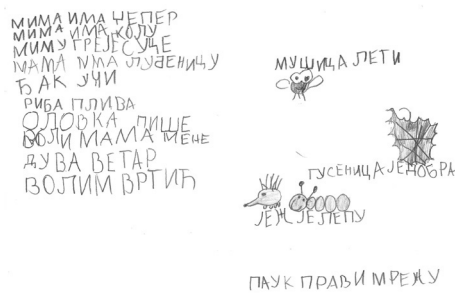 МИМА ИМА ЏЕПЕР
МИМА ИМА КОЛУ
МИМУ ГРЕЈЕ СУЦЕ
МАМА ИМА ЛУБЕНИЦУ
ЂАК УЧИ
РИБА ПЛИВА
ОЛОВКА ПИШЕ
ВОЛИ МАМА МЕНЕ
ДУВА ВЕТАР
ВОЛИМ ВРТИЋ
МУШИЦА ЛЕТИ
ГУСЕНИЦА ЈЕ ДОБРА
ЈЕЖ ЈЕ ЛЕПУ
ПАУК ПРАВИ МРЕЖУ